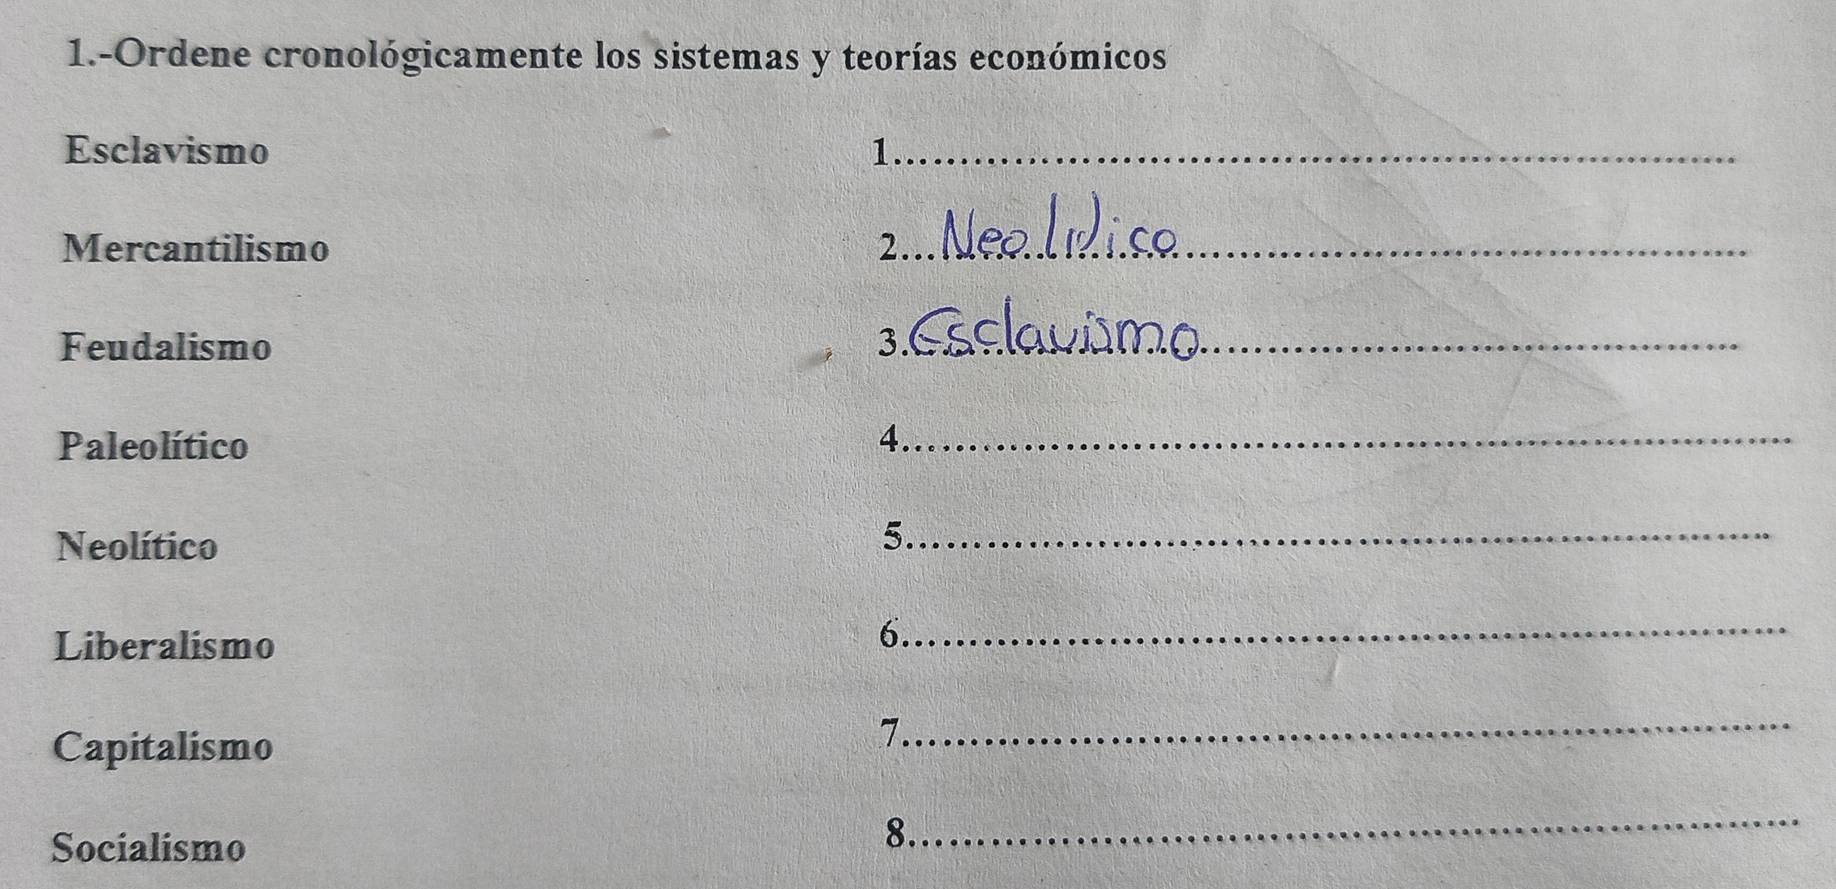 1.-Ordene cronológicamente los sistemas y teorías económicos
Esclavismo 1....................
Mercantilismo 2...Neolitico....................
Feudalismo 3.Esclavismo....................
Paleolítico 4....................
Neolítico 5....................
Liberalismo 6....................
Capitalismo 7....................
Socialismo 8....................